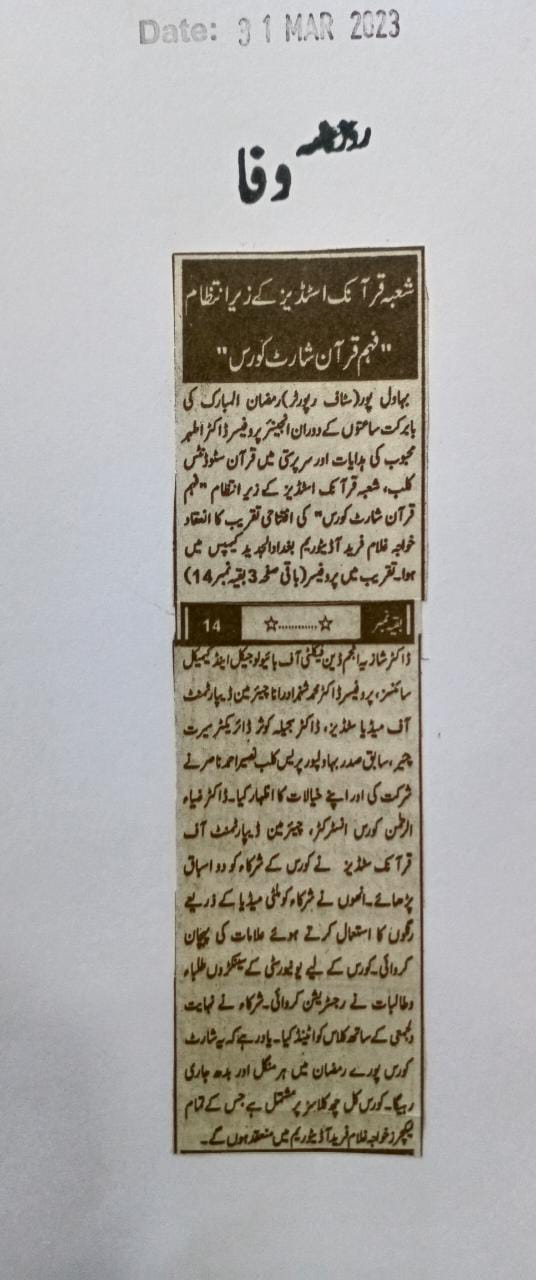 Date: 31 MAR 2023
روزنامہ
وفا
شعبہ قرآنک اسٹڈیز کے زیر انتظام
"فہم قرآن شارٹ کورس"
بہاول پور (سٹاف رپورٹر) رمضان المبارک کی
بابرکت ساعتوں کے دوران انجینئر پروفیسر ڈاکٹر اطہر
محبوب کی ہدایات اور سرپرستی میں قرآن سٹوڈنٹس
کلب، شعبہ قرآنک اسٹڈیز کے زیر انتظام "فہم
قرآن شارٹ کورس" کی افتتاحی تقریب کا انعقاد
خواجہ غلام فرید آڈیٹوریم بغداد الجدید کیمپس میں
ہوا۔ تقریب میں پروفیسر (باقی صفحہ 3 بقیہ نمبر 14)
بقیہ نمبر ☆............☆ 14
ڈاکٹر شازیہ انجم ڈین فیکلٹی آف بائیولوجیکل اینڈ کیمیکل
سائنسز، پروفیسر ڈاکٹر محمد شہزاد رانا چیئرمین ڈیپارٹمنٹ
آف میڈیا سٹڈیز، ڈاکٹر جمیلہ کوثر ڈائریکٹر سیرت
چیئر، سابق صدر بہاولپور پریس کلب نصیر احمد ناصر نے
شرکت کی اور اپنے خیالات کا اظہار کیا۔ ڈاکٹر ضیاء
الرحمن کورس انسٹرکٹر، چیئرمین ڈیپارٹمنٹ آف
قرآنک سٹڈیز نے کورس کے شرکاء کو دو اسباق
پڑھائے۔ انھوں نے شرکاء کو ملٹی میڈیا کے ذریعے
رنگوں کا استعمال کرتے ہوئے علامات کی پہچان
کروائی۔ کورس کے لیے یونیورسٹی کے سینکڑوں طلباء
وطالبات نے رجسٹریشن کروائی۔ شرکاء نے نہایت
دلجمعی کے ساتھ کلاس کو اٹینڈ کیا۔ یاد رہے کہ یہ شارٹ
کورس پورے رمضان میں ہر منگل اور بدھ جاری
رہیگا۔ کورس کل چھ کلاسز پر مشتمل ہے جس کے تمام
لیکچرز خواجہ غلام فرید آڈیٹوریم میں منعقد ہوں گے۔